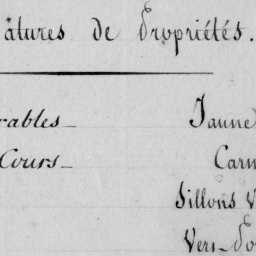 atures de Propriétés.
rables Jaune
Cours Carm
Sillons V
Vers-do